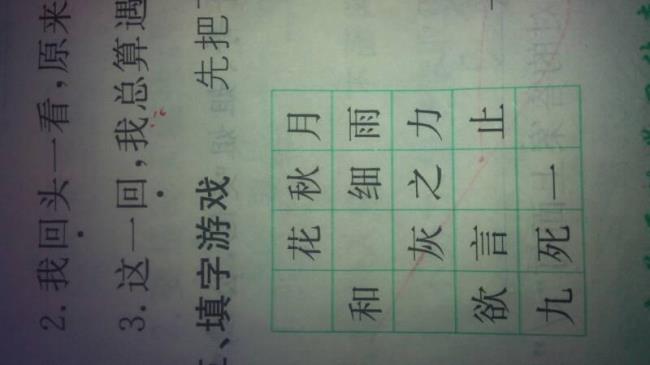 2. 我回头一看,原来
3. 这一回,我总算遇
、填字游戏 先把
花秋月
和 细雨
灰之力
欲言 止
九死一